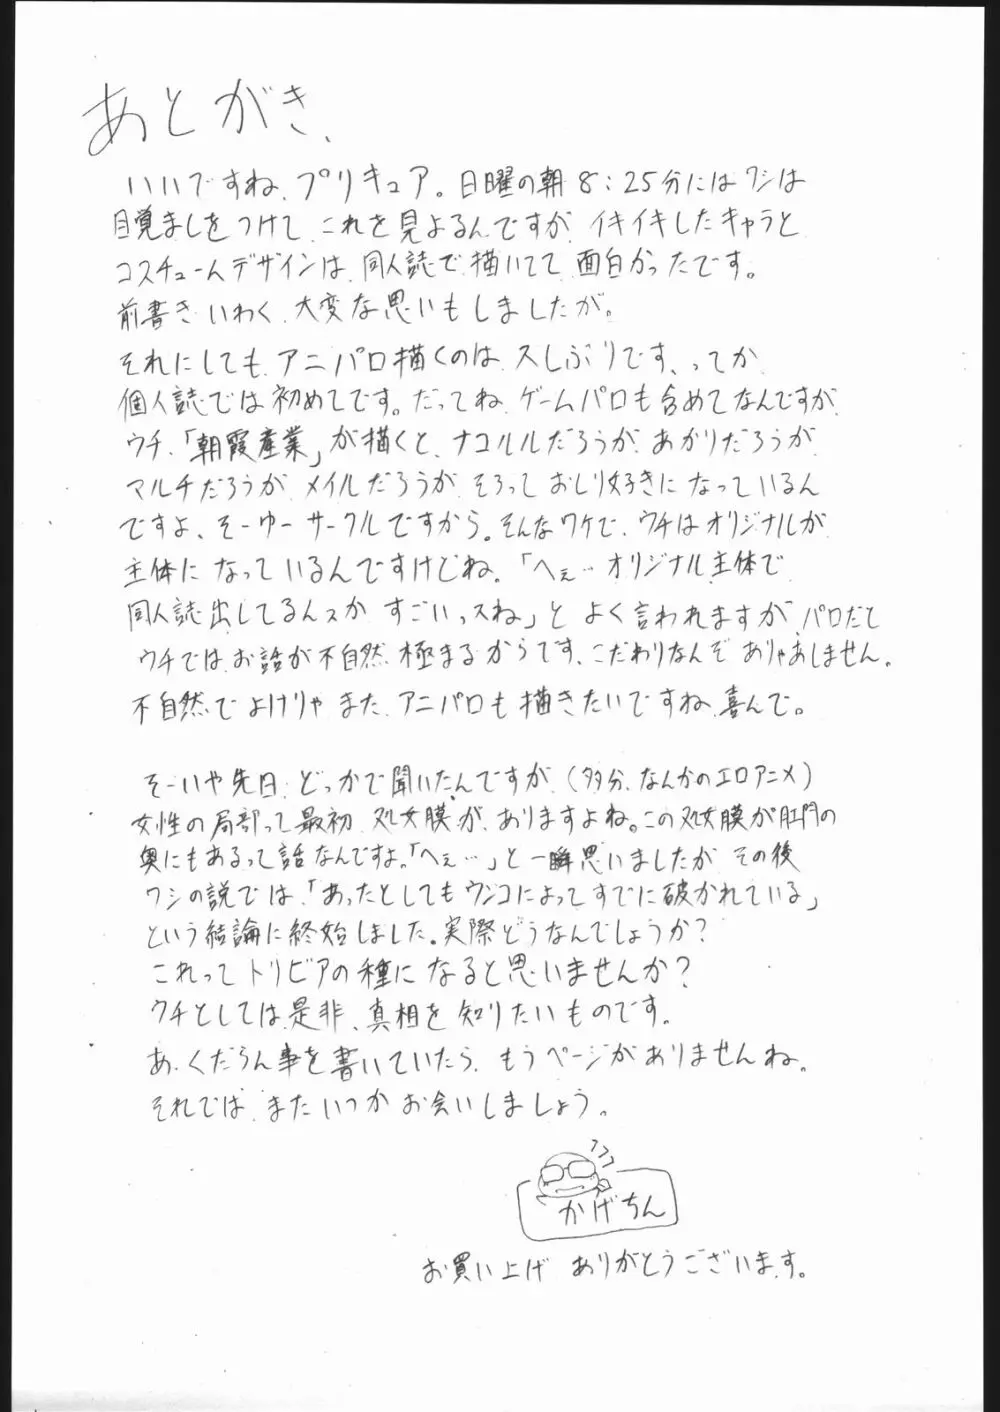 あとがき、
いいですね、プリキュア。日曜の朝8:25分にはワシは
目覚ましをつけて、これを見よるんですが、イキイキしたキャラと
コスチュームデザインは、同人誌で描いてて、面白かったです。
前書きいわく、大変な思いもしましたが。
それにしても、アニパロ描くのは、久しぶりです、ってか、
個人誌では初めてです。だってね、ゲームパロも含めてなんですが、
ウチ、「朝霞産業」が描くと、ナコルルだろうが、あかりだろうが、
マルチだろうが、メイルだろうが、そろっておしり好きになっているん
ですよ、そーゆーサークルですから。そんなワケで、ウチはオリジナルが
主体になっているんですけどね。「へぇ…オリジナル主体で
同人誌出してるんスか、すごいっスね」とよく言われますが、パロだと
ウチでは、お話が不自然、極まるからです、こだわりなんぞありゃあしません。
不自然でよけりゃ、また、アニパロも描きたいですね、喜んで。
そーいや先日、どっかで聞いたんですが、(多分、なんかのエロアニメ)
女性の局部って最初、処女膜が、ありますよね。この処女膜が肛門の
奥にもあるって話なんですよ。「へぇ…」と一瞬思いましたが、その後
ワシの説では、「あったとしてもウンコによってすでに破かれている」
という結論に終始しました。実際どうなんでしょうか?
これってトリビアの種になると思いませんか?
ウチとしては是非、真相を知りたいものです。
あ、くだらん事を書いていたら、もうページがありませんね。
それでは、またいつかお会いしましょう。
フフフ
かげちん
お買い上げ ありがとうございます。